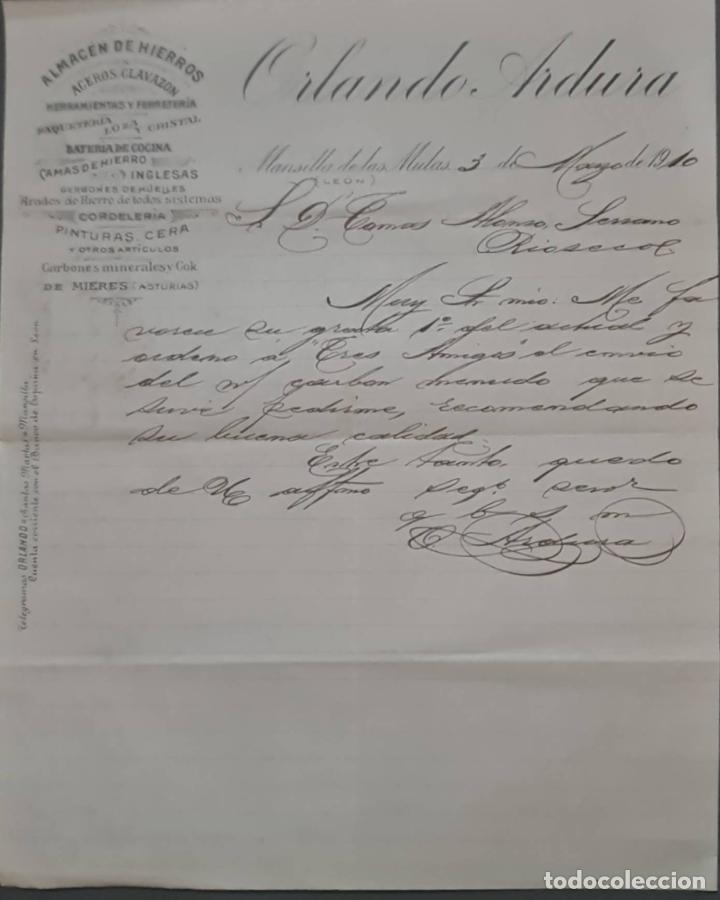 ALMACEN DE HIERROS
ACEROS, CLAVAZON
HERRAMIENTAS Y FERRETERÍA
PAQUETERÍA LOZA Y CRISTAL
BATERIA DE COCINA
CAMAS DE HIERRO
INGLESAS
GERGONES DE MUELLES
Arados de Hierro de todos sistemas
CORDELERIA
PINTURAS, CERA
Y OTROS ARTICULOS
Carbones minerales y Cok
DE MIERES (ASTURIAS)
Telegramas ORLANDO = Santas Martas = Mansilla
Cuenta corriente con el Banco de España en León
Orlando Ardura
Mansilla de las Mulas 3 de Mayo de 1910
(LEON)
S. D. Tomas Alonso Serrano
Rioseco
Muy Sr mio: Me fa
vorece su grata 1º del actual y
ordeno á "Tres Amigos" el envio
del v/ carbon menudo que se
sirve pedirme, recomendando
su buena calidad.
Entre tanto, quedo
de V affmo seg.º servr
q b s m
O Ardura
todocoleccion.net